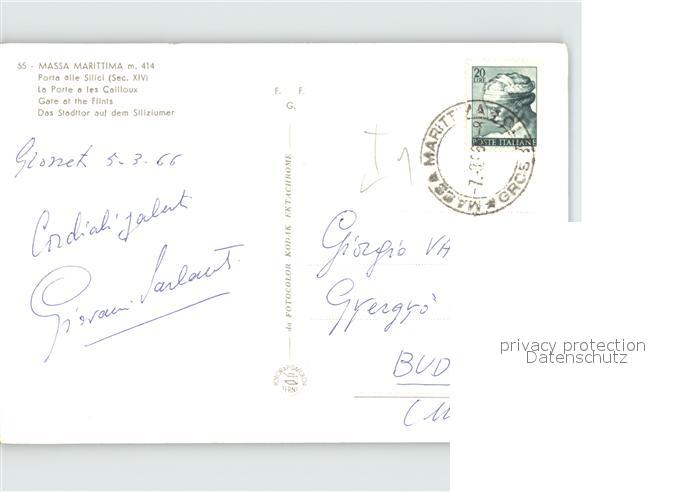 55 - MASSA MARITTIMA m. 414
Porta alle Silici (Sec. XIV)
La Porte a les Cailloux
Gate at the Flints
Das Stadttor auf dem Siliziumer
F. F.
G.
20
LIRE
POSTE ITALIANE
MASSA MARITTIMA
GROS
5-3-66
Cordiali saluti
Giovanni
da FOTOCOLOR KODAK EKTACHROME
Giorgio VA
Gyergyó
BUD
privacy protection
Datenschutz